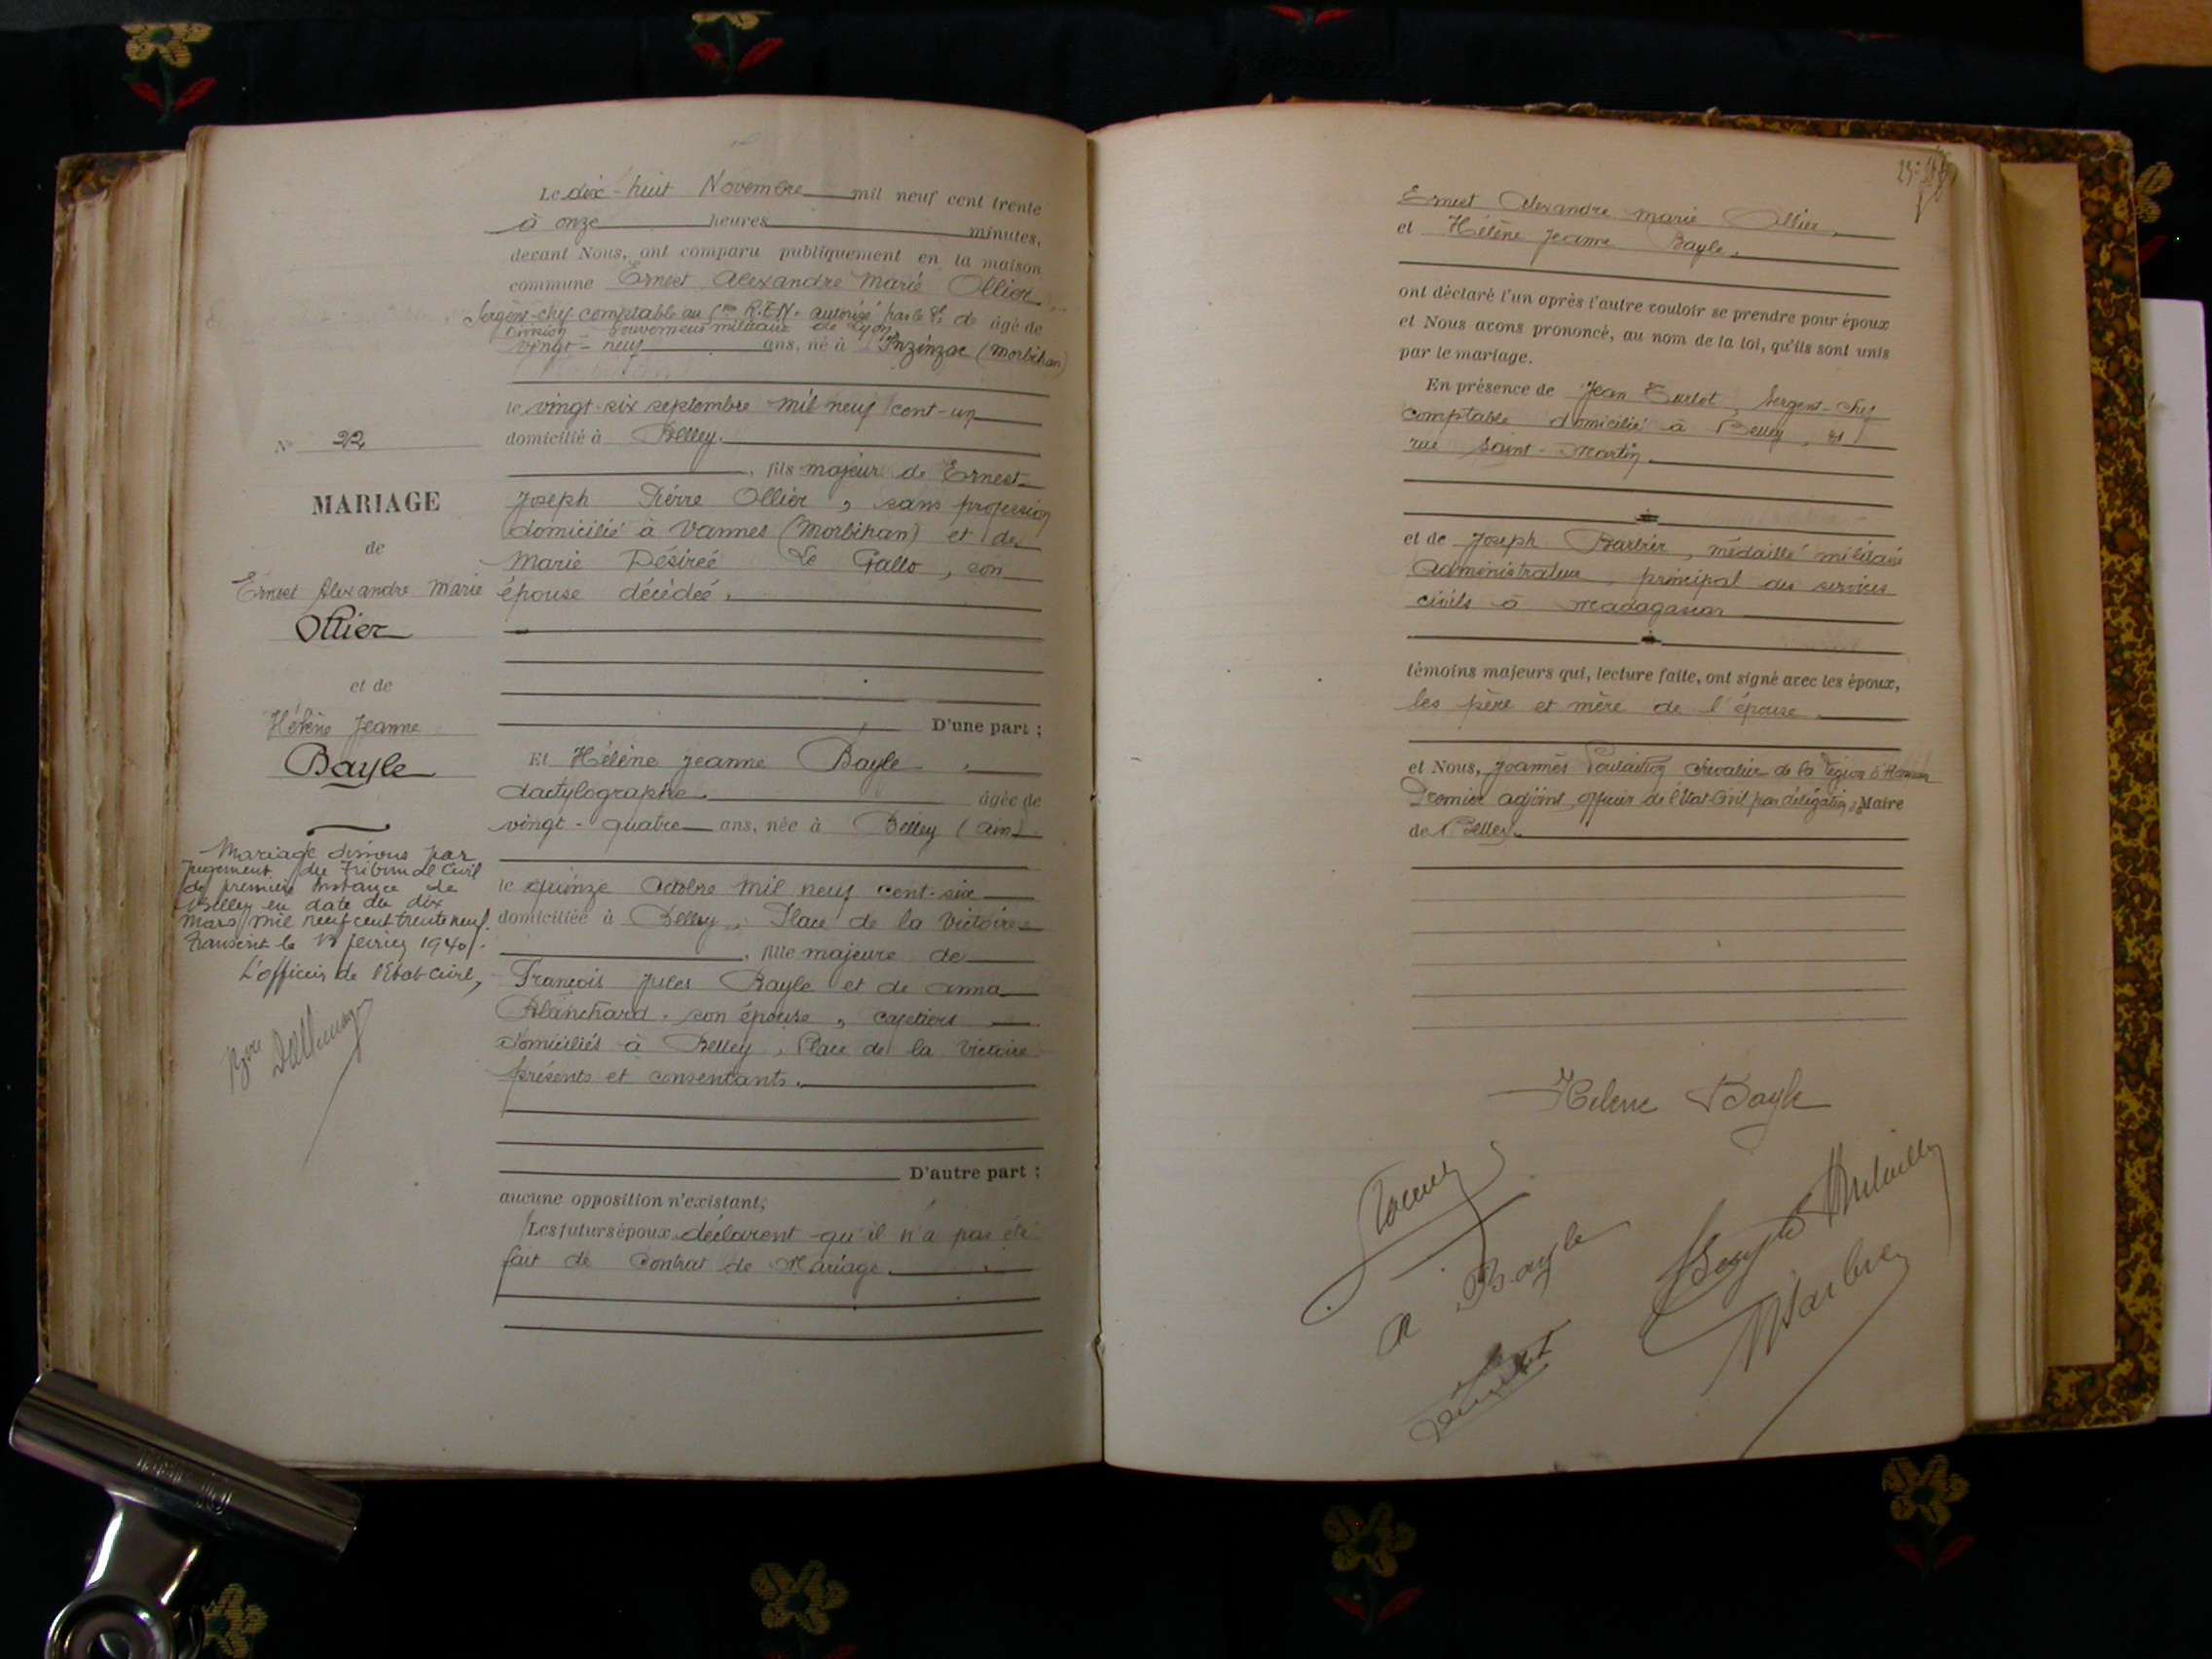 Le dix-huit Novembre mil neuf cent trente
à onze heures minutes,
devant Nous, ont comparu publiquement en la maison
commune Ernest Alexandre Marie Ollier
Sergent-chef comptable au R.T.N. autorisé par le de âgé de
Division Gouverneur militaire de Lyon
vingt-neuf ans, né à Inzinzac (Morbihan)
le vingt-six septembre mil neuf cent-un
N° 22
domicilié à Belley.
, fils majeur de Ernest
MARIAGE
de
Ernest Alexandre Marie
Ollier
et de
Hélène Jeanne
Bayle
Joseph Pierre Ollier, sans profession
domicilié à Vannes (Morbihan) et de
Marie Désirée Le Gallo, son
épouse décédée.
D'une part ;
Et Hélène Jeanne Bayle,
dactylographe âgée de
vingt-quatre ans, née à Belley (Ain)
Mariage dissous par
jugement du Tribunal Civil
de première instance de
Belley en date du dix
mars mil neuf cent trente neuf.
Transcrit le 13 février 1940.
L'officier de l'Etat-Civil,
le quinze Octobre mil neuf cent-six
domiciliée à Belley, Place de la Victoire
, fille majeure de
François Jules Bayle et de Anna
Blanchard, son épouse, cafetiers
domiciliés à Belley, Place de la Victoire
présents et consentants.
D'autre part ;
aucune opposition n'existant,
Les futurs époux déclarent qu'il n'a pas été
fait de Contrat de Mariage.
Ernest Alexandre Marie Ollier,
et Hélène Jeanne Bayle,
ont déclaré l'un après l'autre vouloir se prendre pour époux
et Nous avons prononcé, au nom de la loi, qu'ils sont unis
par le mariage.
En présence de Jean Turlot, Sergent-Chef
comptable domicilié à Belley, 21
rue Saint-Martin
et de Joseph Barbier, médaillé militaire
Administrateur principal des services
civils à Madagascar
témoins majeurs qui, lecture faite, ont signé avec les époux,
les père et mère de l'épouse
et Nous, Joannès chevalier de la Légion d'Honneur
Premier adjoint, officier de l'Etat-Civil par délégation, Maire
de Belley.
Hélène Bayle
A Bayle
Bayle
Barbier